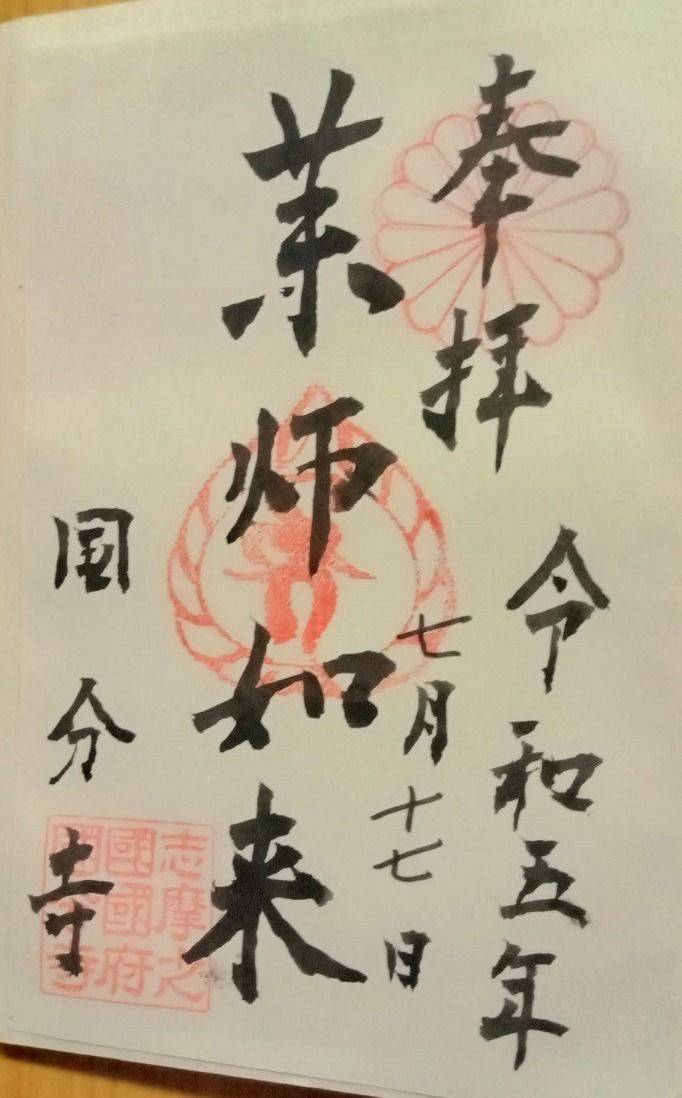 奉拝
令和五年
七月十七日
薬師如来
国分寺
志摩之
國國府